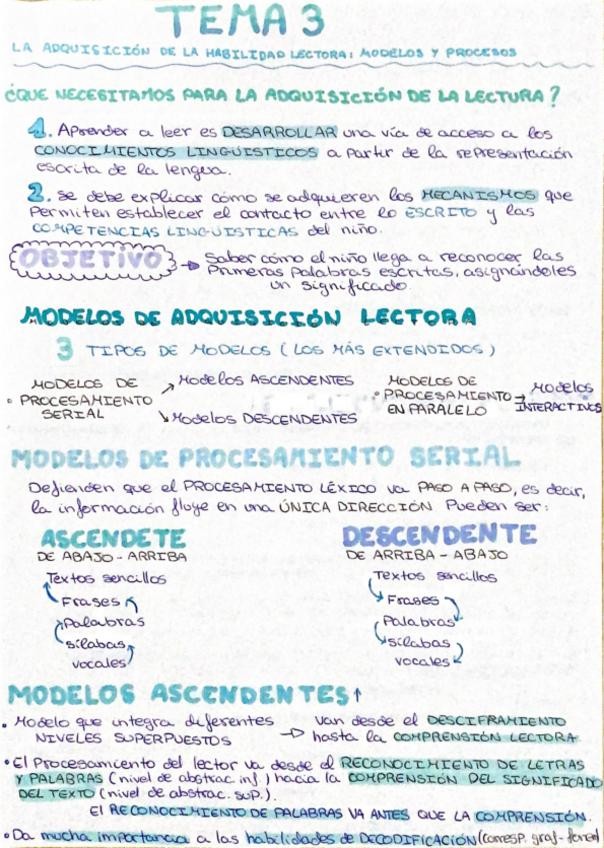 TEMA 3
LA ADQUISICIÓN DE LA HABILIDAD LECTORA: MODELOS Y PROCESOS
¿QUE NECESITAMOS PARA LA ADQUISICIÓN DE LA LECTURA?
1. Aprender a leer es DESARROLLAR una vía de acceso a los
CONOCIMIENTOS LINGÜÍSTICOS a partir de la representación
escrita de la lengua.
2. Se debe explicar cómo se adquieren los MECANISMOS que
Permiten establecer el contacto entre lo ESCRITO y las
COMPETENCIAS LINGÜISTICAS del niño.
OBJETIVO → Saber cómo el niño llega a reconocer las
Primeras palabras escritas, asignándoles
un significado.
MODELOS DE ADQUISICIÓN LECTORA
3 TIPOS DE MODELOS (LOS MÁS EXTENDIDOS)
• MODELOS DE PROCESAMIENTO SERIAL
→ Modelos ASCENDENTES
↘ Modelos DESCENDENTES
• MODELOS DE PROCESAMIENTO EN PARALELO → Modelos INTERACTIVOS
MODELOS DE PROCESAMIENTO SERIAL
Defienden que el PROCESAMIENTO LÉXICO va PASO A PASO, es decir,
la información fluye en una ÚNICA DIRECCIÓN Pueden ser:
ASCENDETE
DE ABAJO - ARRIBA
Textos sencillos
Frases
Palabras
sílabas
vocales
DESCENDENTE
DE ARRIBA - ABAJO
Textos sencillos
Frases
Palabras
sílabas
vocales
MODELOS ASCENDENTES ↑
• Modelo que integra diferentes NIVELES SUPERPUESTOS → Van desde el DESCIFRAMIENTO
hasta la COMPRENSIÓN LECTORA
• El Procesamiento del lector va desde el RECONOCIMIENTO DE LETRAS
Y PALABRAS (nivel de abstrac. inf.) hacia la COMPRENSIÓN DEL SIGNIFICADO
DEL TEXTO (nivel de abstrac. sup.).
El RECONOCIMIENTO DE PALABRAS VA ANTES QUE LA COMPRENSIÓN.
• Da mucha importancia a las habilidades de DECODIFICACIÓN (corresp. graf-